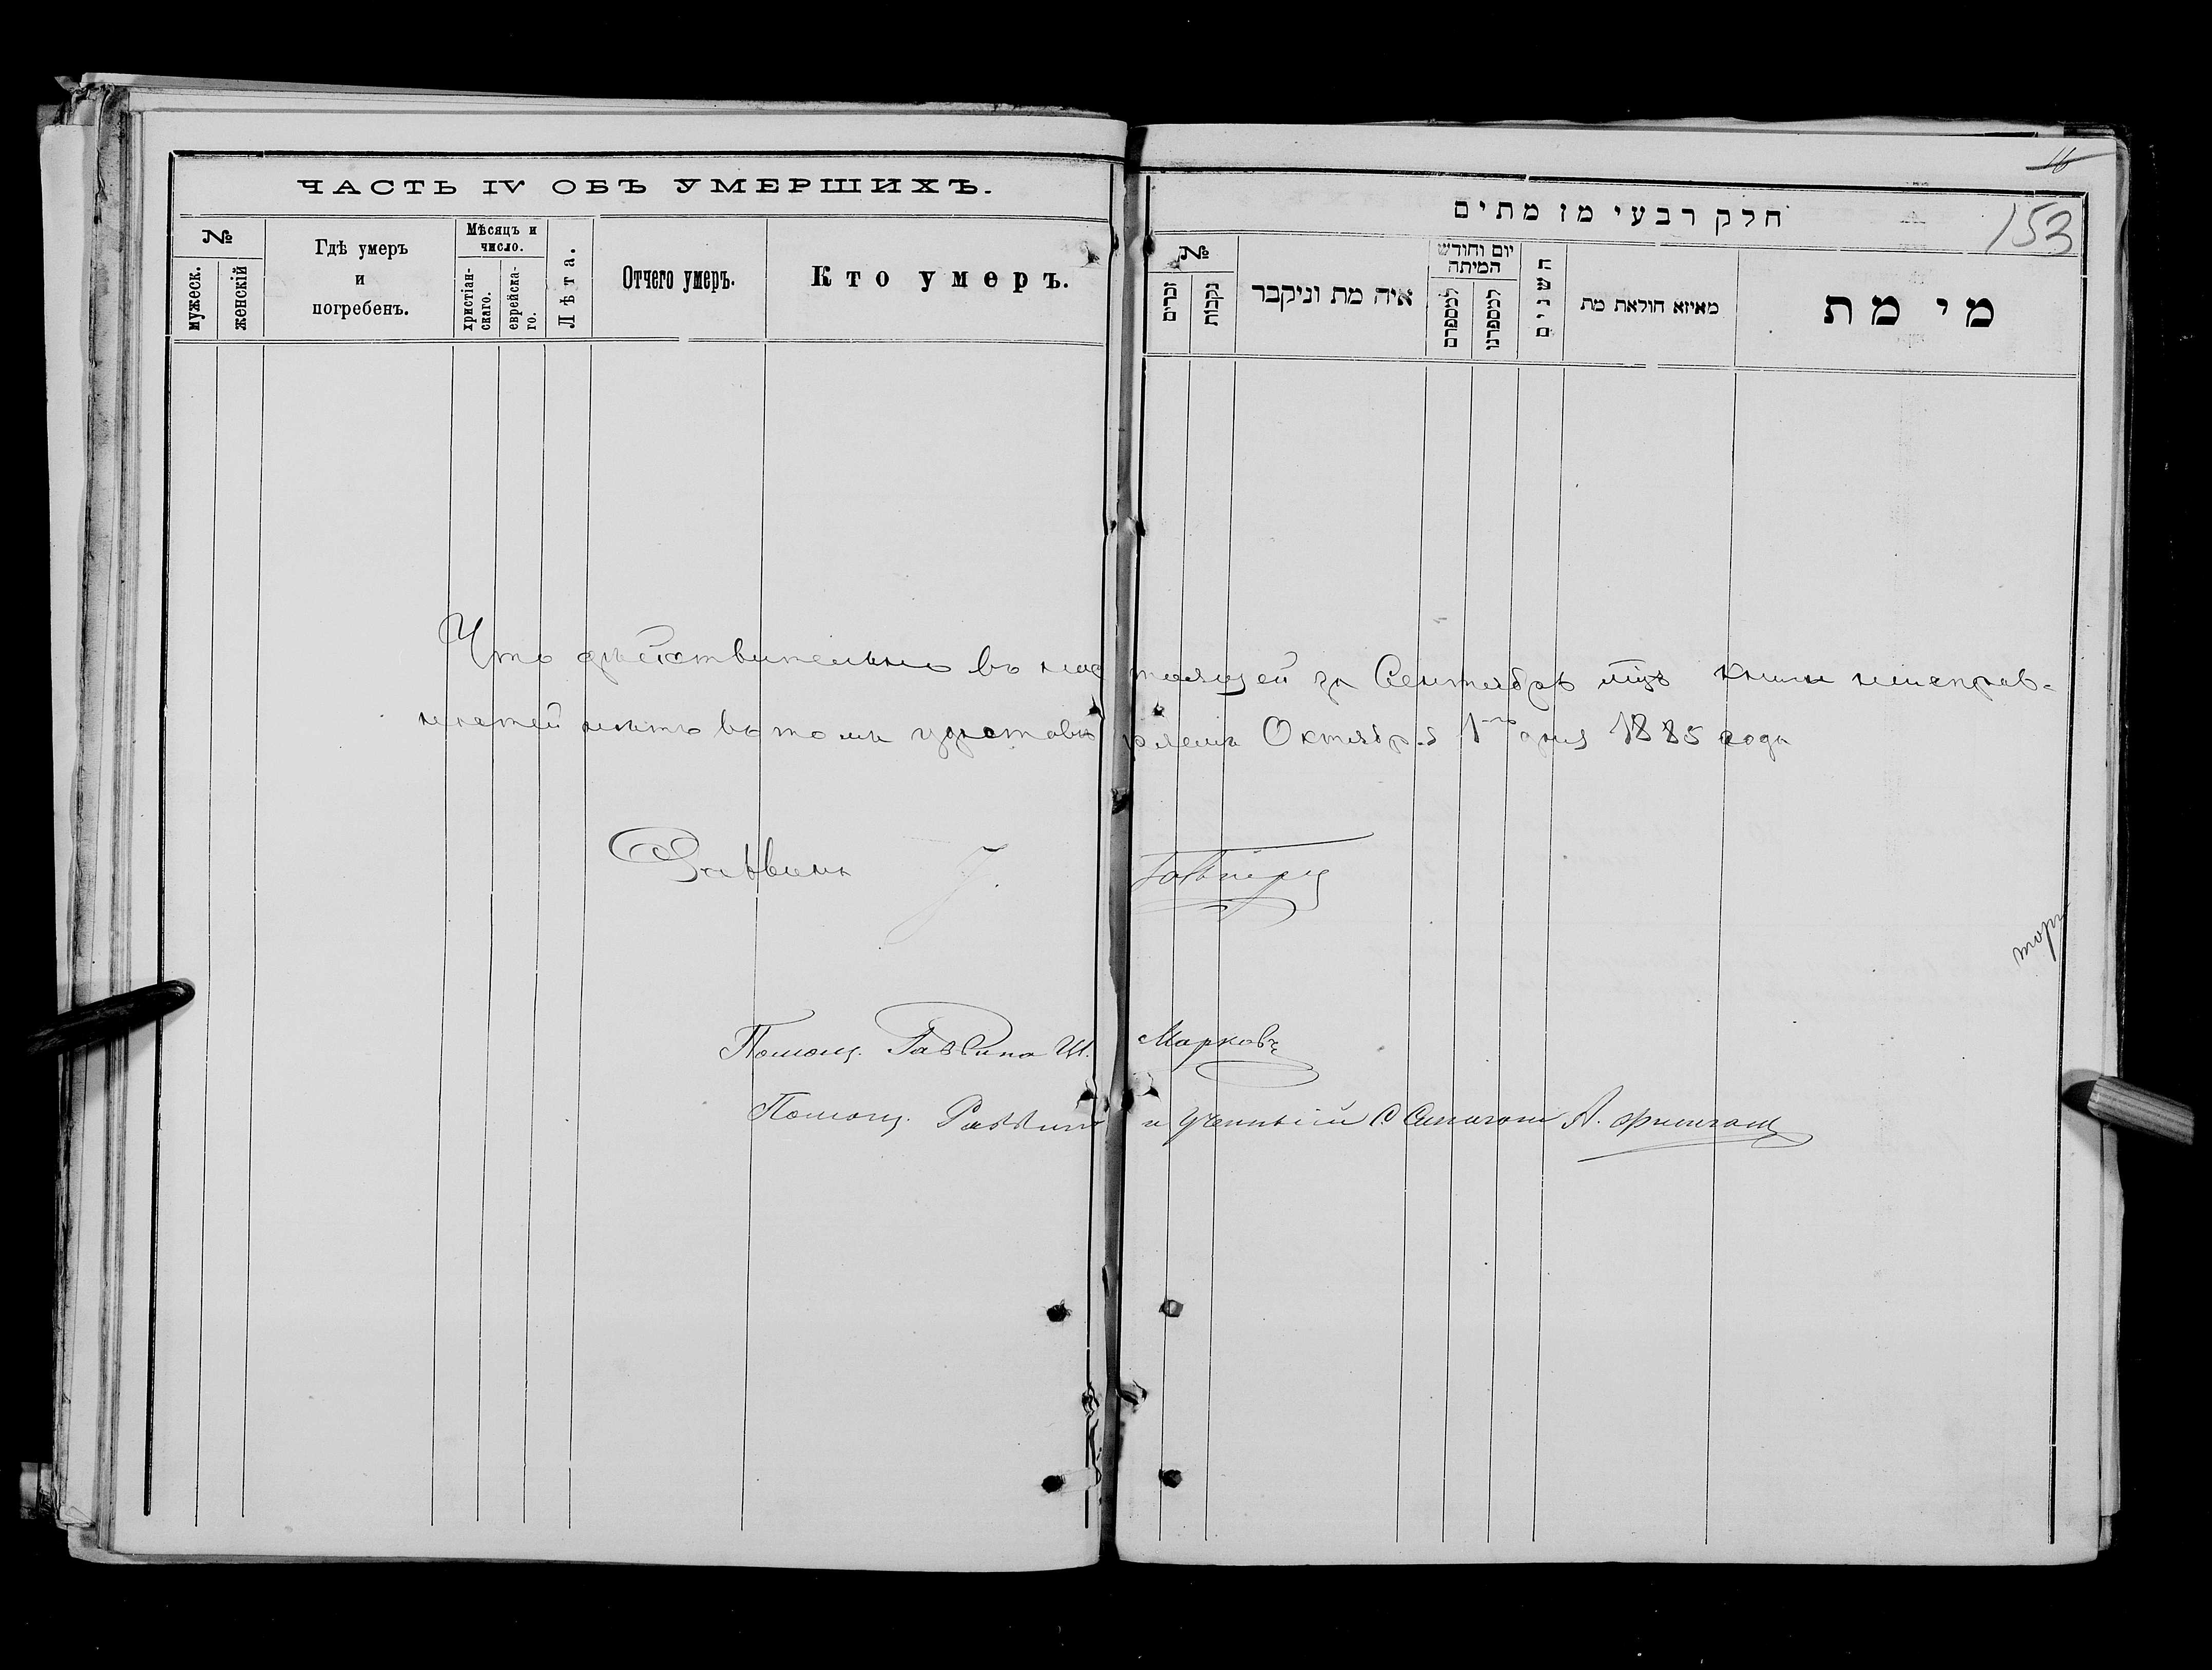 ЧАСТЬ IV ОБЪ УМЕРШИХЪ.
№
мужеск.
женскій
Гдѣ умеръ
и
погребенъ.
Мѣсяцъ и
число.
христіан-
скаго.
еврейска-
го.
Лѣта.
Отчего умеръ.
Кто умеръ.
16
153
חלק רבעי מן מתים
№
זכרים
נקבות
איה מת וניקבר
יום וחודש
המיתה
למספרם
למספרנו
השנים
מאיזא חולאת מת
מי מת
Что дѣйствительно въ настоящей за Сентябрь мцъ книги неисправ-
ностей нѣтъ въ томъ удостовѣряемъ Октября 1го дня 1885 года
Раввинъ
Помощ. Раввина Ш. Марковъ
Помощ. Раввина и Ученый С. А.